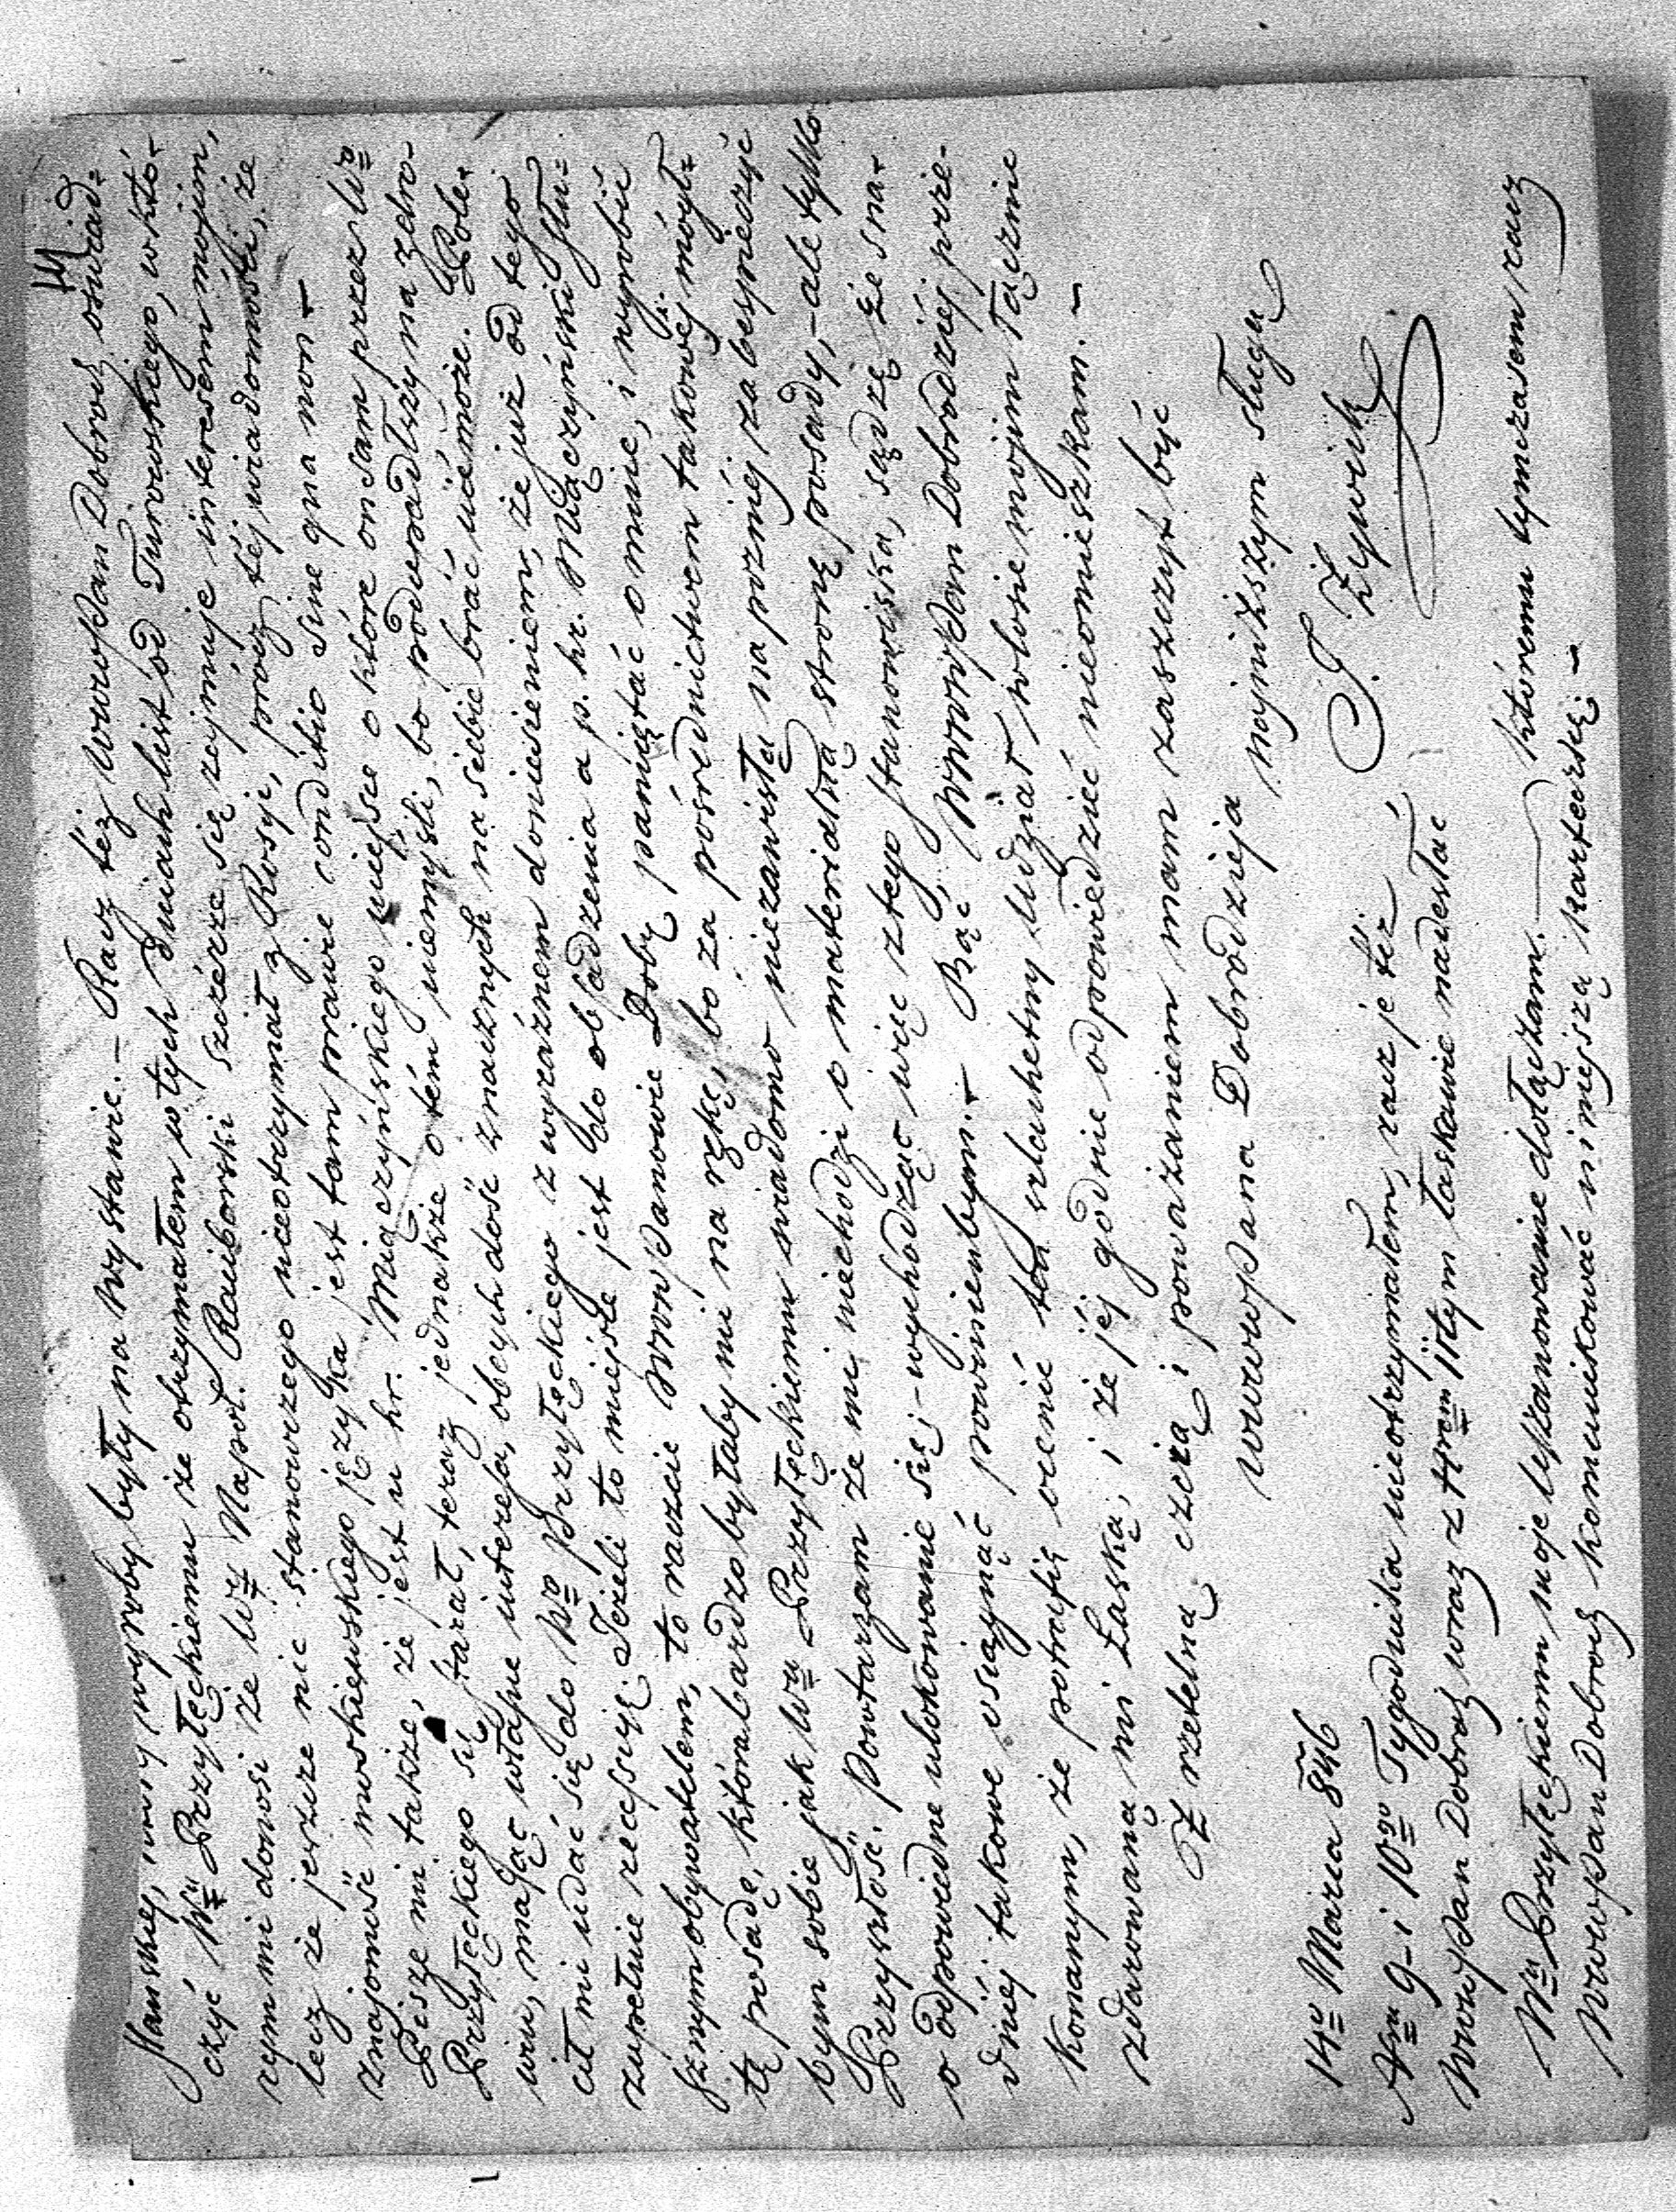 14
skiej, wyroby były na wystawie. – Racz też WWPan Dobrodz oświad=
czyć Wu Przyłęckiemu że otrzymałem w tych dniach list od Turowskiego, w któ-
rym mi donosi że Wy Napol. Raciborski szczérze się zajmuje interesem mojim,
lecz że jeszcze nic stanowczego nieotrzymał z Rosyi, prócz téj wiadomości, że
znajomość moskiewskiego języka jest tam prawie conditio sine qua non –
Pisze mi także, że jest u hr. Miączyńskiego miejsce o które on sam przez Wo
Przyłęckiego się starał, teraz jednakże o tém niemyśli, bo podupadłszy na zdro-
wiu, mając własne interesa, obcych dość znacznych na siebie brać niemoże. Pole-
cił mi udać się do Wo Przyłęckiego z wyraźnem doniesieniem, że już od tego
zupełnie recessuje. Jeżeli to miejsce jest do obsadzenia a p. hr. Miączyński słu=
sznym obywatelem, to raczcie WWPanowie Dobr pamiętać o mnie, i wyrobić
tę posadę, która bardzo byłaby mi na rękę, bo za pośrednictwem takowéj mógł=
bym sobie jak Wu Przyłęckiemu wiadomo niezawisłą na poźniéj zabespieczyć
Przyszłość. Powtarzam że mi niechodzi o materialną stronę posady, – ale tylko
o odpowiedne ulokowanie się; – wychodząc więc z tego stanowiska, sądzę że sna-
dniéj takowe osiągnąć powinienbym. – Bąć WWWPan Dobrodziéj prze-
konanym, że potrafię ocenić ten szlachetny udział w losie mojim łącznie
zdarowaną mi Łaską, i że jéj godnie odpowiedzić nieomieszkam. –
Z rzetelną czcią i poważaniem mam zaszczyt być
WWWPana Dobrodzieja
najniższym sługą
J. Żywick
14o Marca 846
Nru 9– i 10go Tygodnika nieotrzymałem, racz je téż
WWPan Dobrodz wraz z 11tym łaskawie nadesłać
Wu Przyłęckiemu moje uszanowanie dołączam. — któremu tymczasem racz
WWWPan Dobrodz komunikować niniejszą karteczkę. –